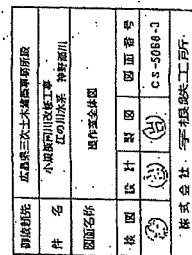 御依頼先 広島県三次土木建築事務所殿
件名 小規模河川改修工事
江の川水系 神野瀬川
図面名称 操作室全体図
検図 設計 製図 図面番号
CS-5088-3
株式会社 宇根鉄工所